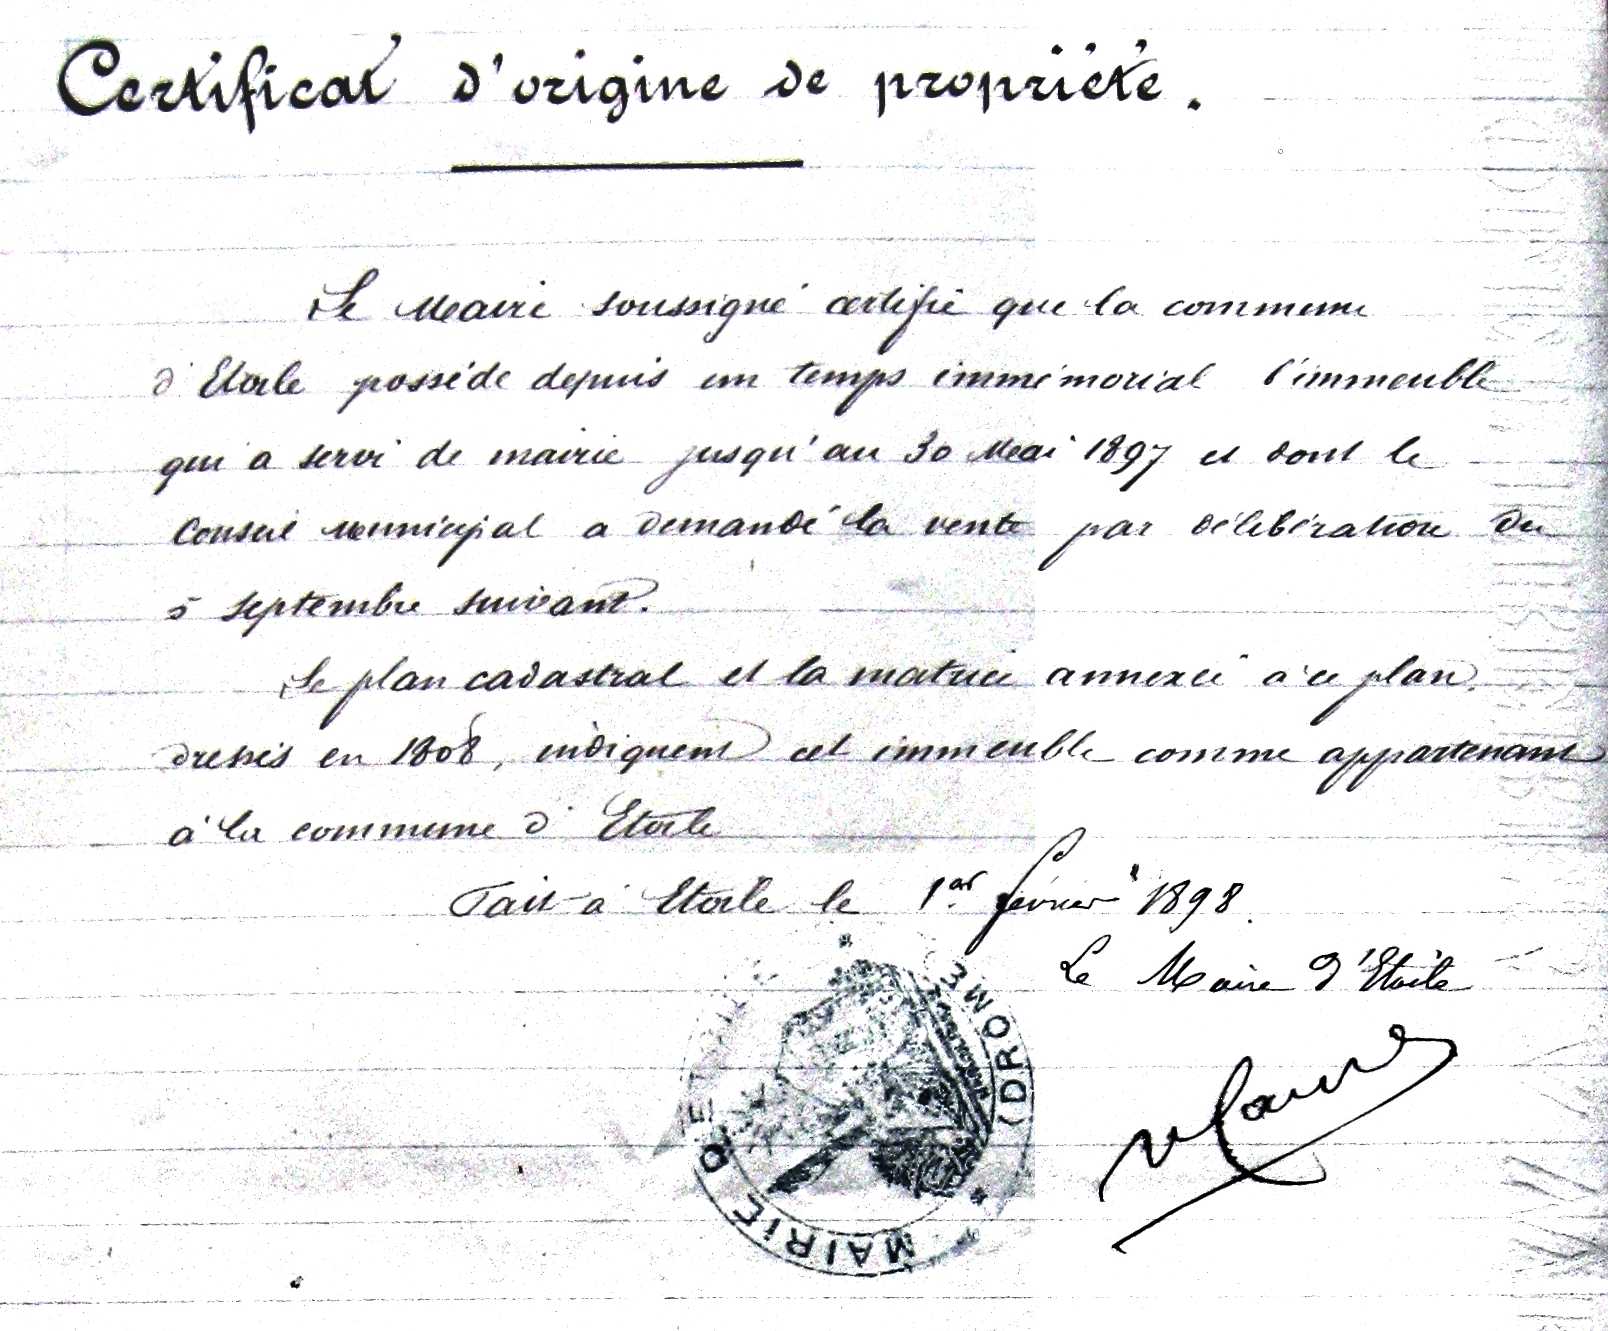 Certificat d'origine de propriété.
Le Maire soussigné certifie que la commune
d'Etoile possède depuis un temps immémorial l'immeuble
qui a servi de mairie jusqu'au 30 Mai 1897 et dont le
Conseil municipal a demandé la vente par délibération du
5 septembre suivant.
Le plan cadastral et la matrice annexée à ce plan,
dressés en 1808, indiquent cet immeuble comme appartenant
à la commune d'Etoile
Fait à Etoile le 1er février 1898.
Le Maire d'Etoile
MAIRIE D'ETOILE
(DROME)